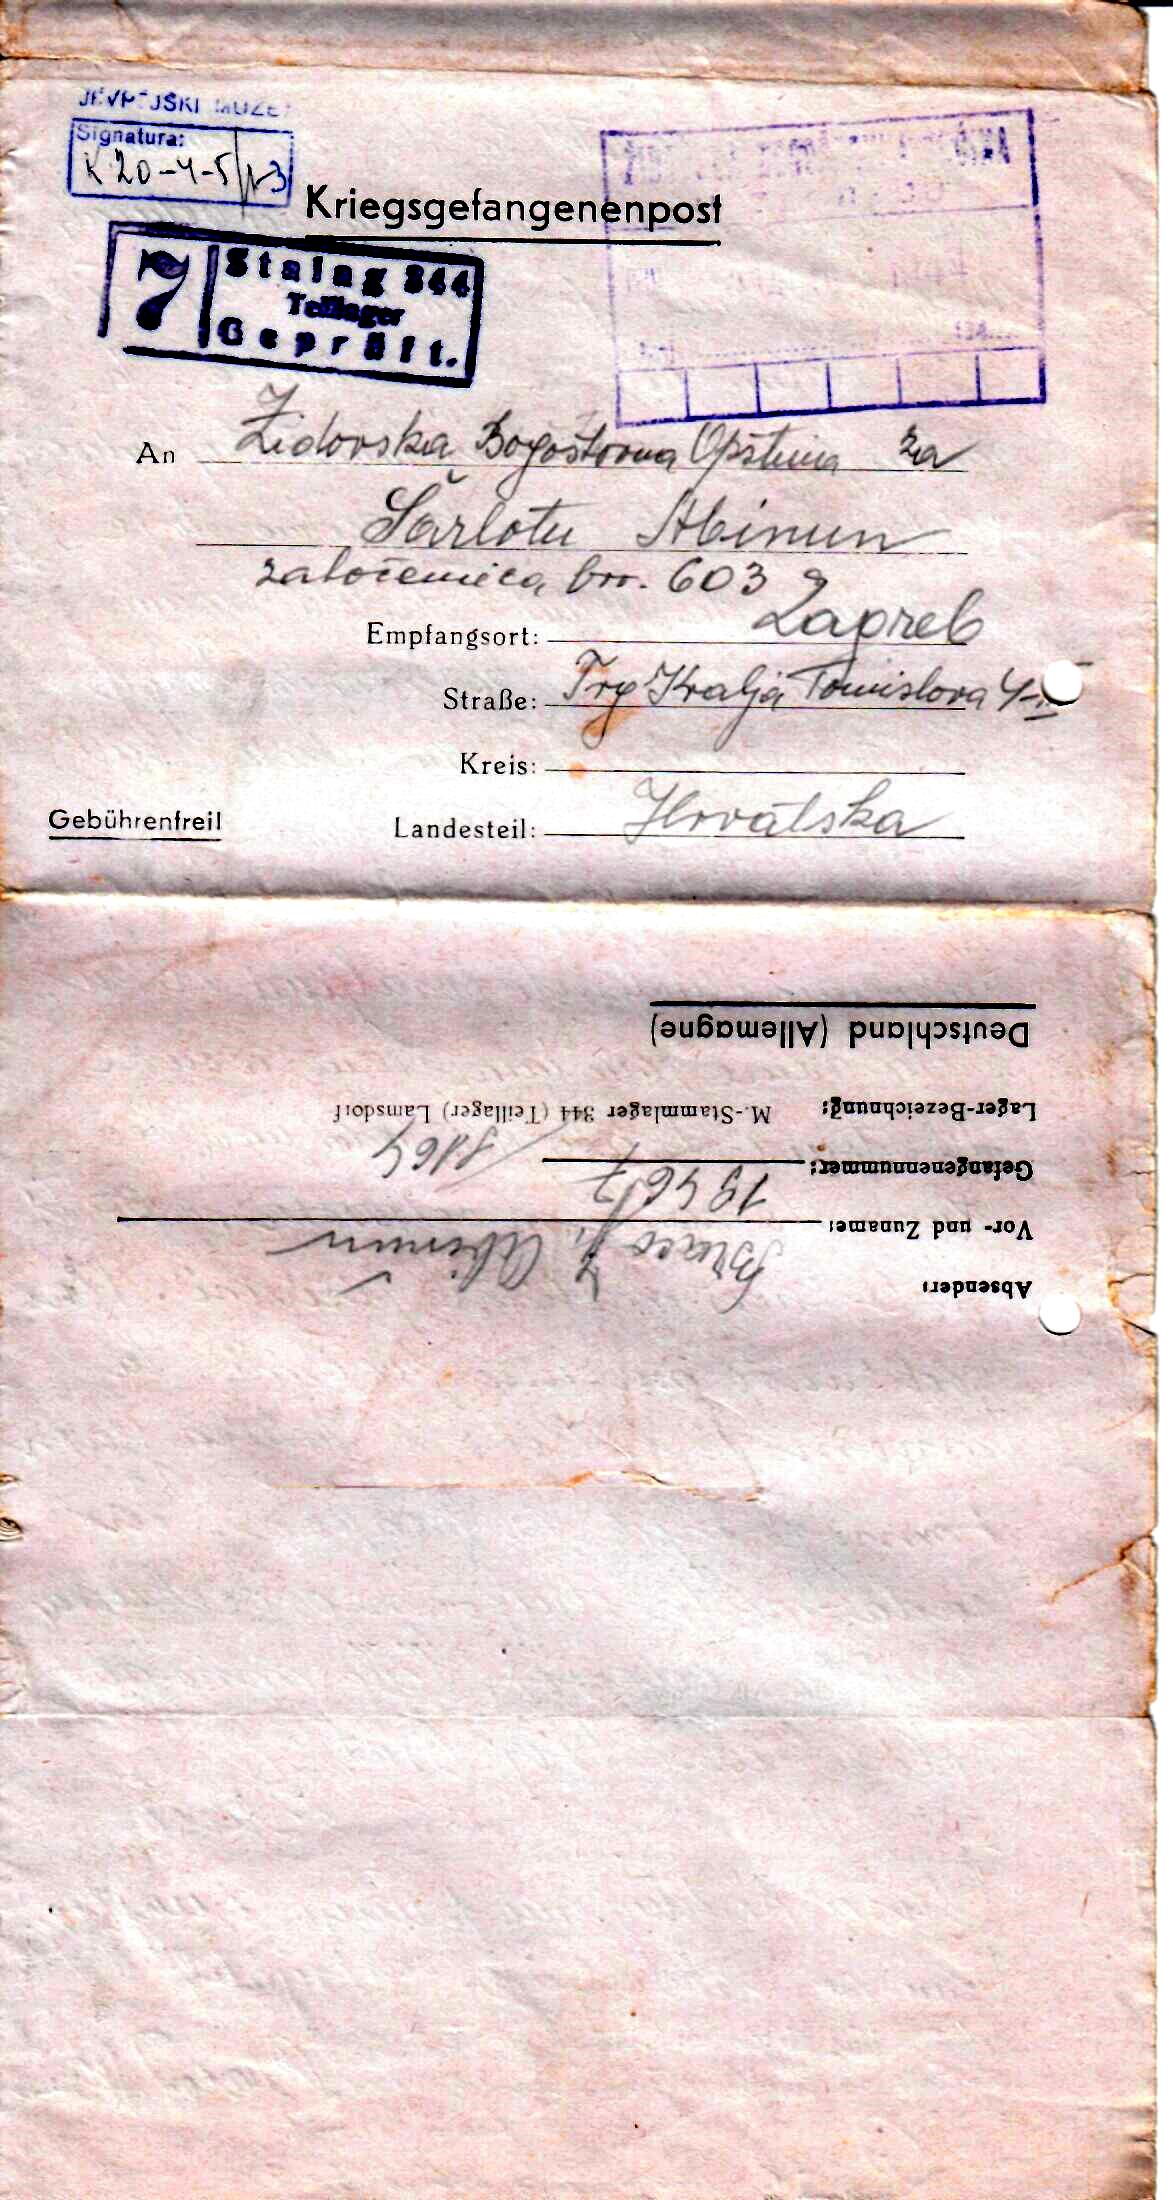 JEVREJSKI MUZEJ
Signatura:
K 20-4-5/
Kriegsgefangenenpost
7
Stalag 344
Teillager
Geprüft.
An Židovska Bogoštovna Opština za
Šarlotu Abinun
zatočenica br. 603
Empfangsort: Zagreb
Straße: Trg Kralja Tomislava 4-
Kreis:
Gebührenfrei!
Landesteil: Hrvatska
Deutschland (Allemagne)
Lager-Bezeichnung: M.-Stammlager 344 (Teillager) Lamsdorf
Gefangenennummer: 19467 / 8164
Vor- und Zuname: Abinun
Absender: